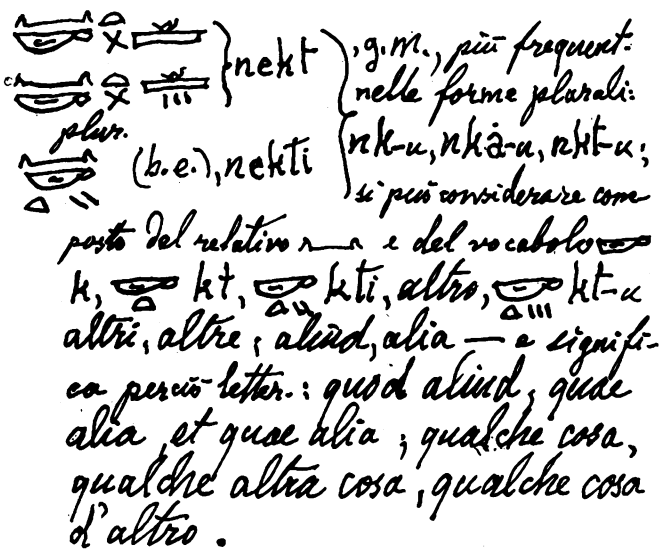 nekt , g.m., più frequent.
nelle forme plurali:
plur.
(b.e.), nekti nk-u, nkȧ-u, nkt-u;
si può considerare com-
posto del relativo e del vocabolo
k, kt, kti, altro, kt-u
altri, altre; aliud, alia — e signifi-
ca perciò letter.: quod aliud, quae
alia, et quae alia; qualche cosa,
qualche altra cosa, qualche cosa
d'altro.